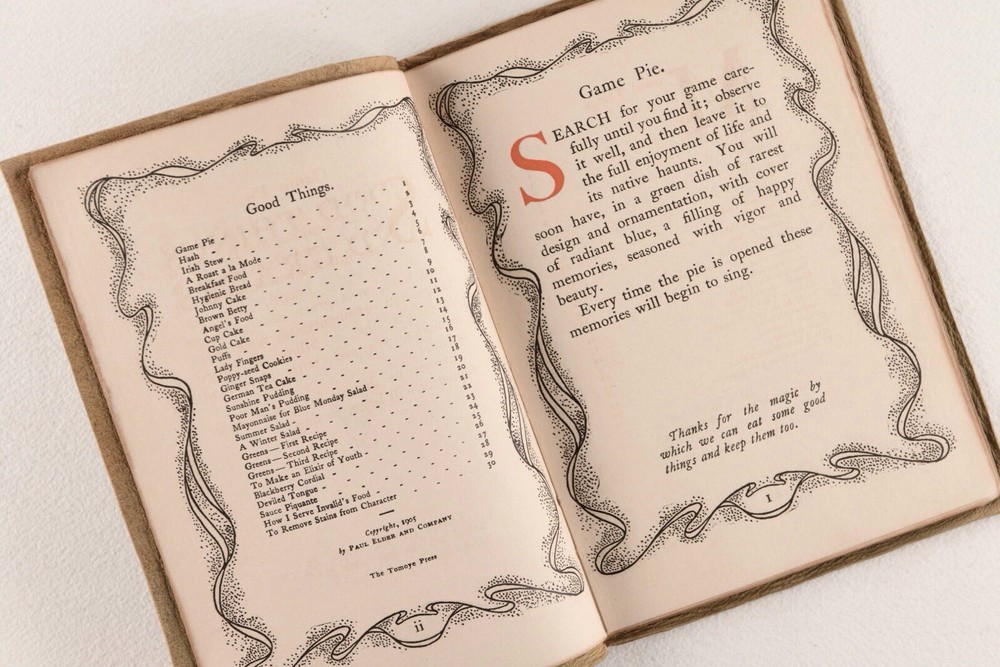 Good Things.
Game Pie - 1
Hash 2
Irish Stew - 3
A Roast a la Mode 4
Breakfast Food 5
Hygienic Bread 6
Johnny Cake 7
Brown Betty 8
Angel's Food 9
Cup Cake 10
Gold Cake 11
Puffs 12
Lady Fingers 13
Poppy-seed Cookies - 14
Ginger Snaps 15
German Tea Cake 16
Sunshine Pudding 17
Poor Man's Pudding 18
Mayonnaise for Blue Monday Salad - 19
Summer Salad - 20
A Winter Salad 21
Greens—First Recipe 22
Greens—Second Recipe 23
Greens—Third Recipe 24
To Make an Elixir of Youth - 25
Blackberry Cordial 26
Deviled Tongue - 27
Sauce Piquante 28
How I Serve Invalid's Food - 29
To Remove Stains from Character 30
Copyright, 1905
by PAUL ELDER AND COMPANY
The Tomoye Press
ii
Game Pie.
SEARCH for your game care-
fully until you find it; observe
it well, and then leave it to
the full enjoyment of life and
its native haunts. You will
soon have, in a green dish of rarest
design and ornamentation, with cover
of radiant blue, a filling of happy
memories, seasoned with vigor and
beauty.
Every time the pie is opened these
memories will begin to sing.
Thanks for the magic by
which we can eat some good
things and keep them too.
1